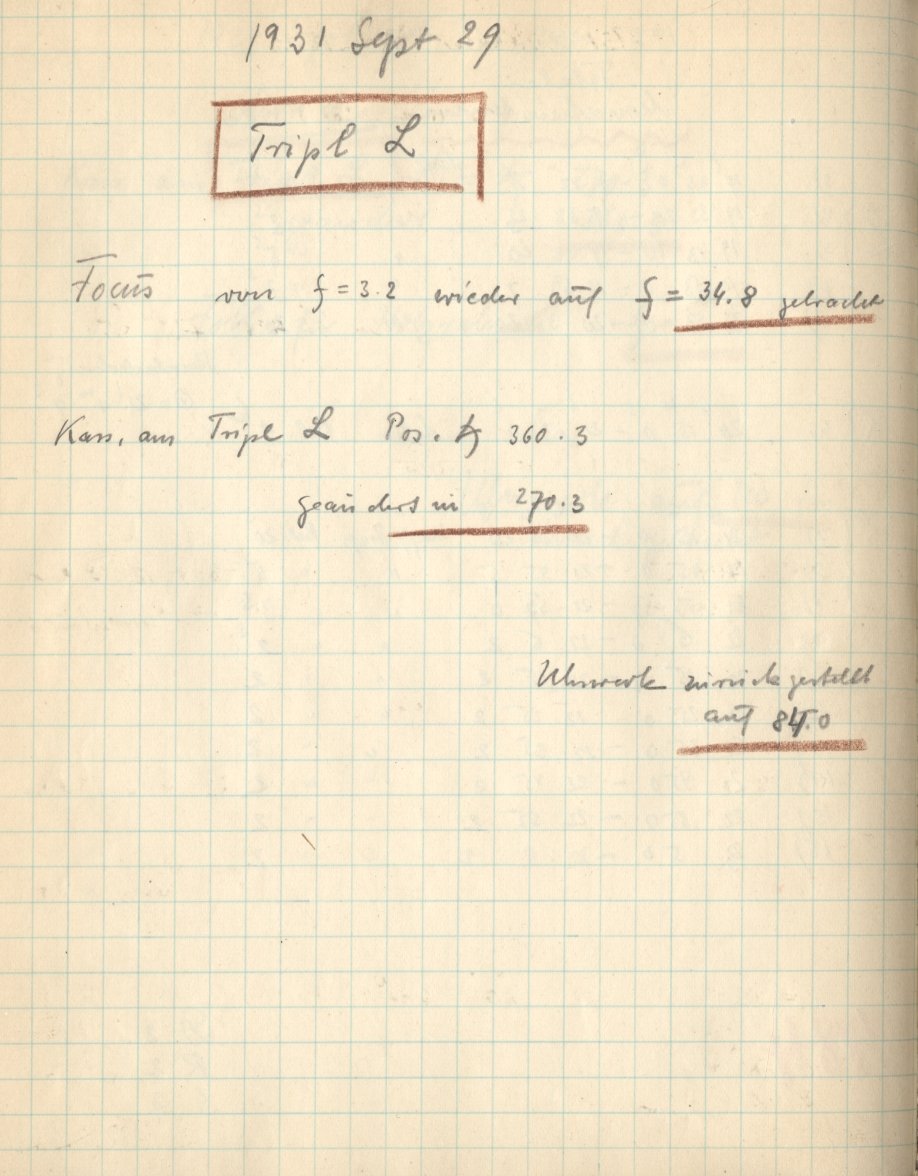 1931 Sept 29
Tripl L
Focus von f = 3.2 wieder auf f = 34.8 gebracht
Kass. am Tripl L Pos. ∡ 360.3
geändert in 270.3
Uhrwerk zurückgestellt
auf 84.0